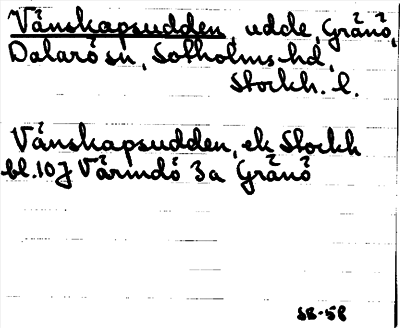 Vänskapsudden, udde, Gränö,
Dalarö sn, Sotholms hd,
Stockh. l.
Vänskapsudden, ek Stockh
bl. 10 J Värmdö 3 a Gränö
SB-58